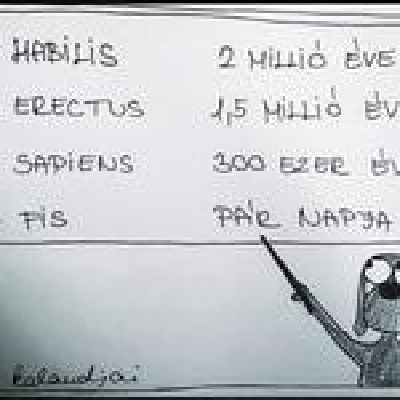 HABILIS 2 MILLIÓ ÉVE
ERECTUS 1,5 MILLIÓ ÉV
SAPIENS 300 EZER ÉV
FIS PÁR NAPJA
kalandjai